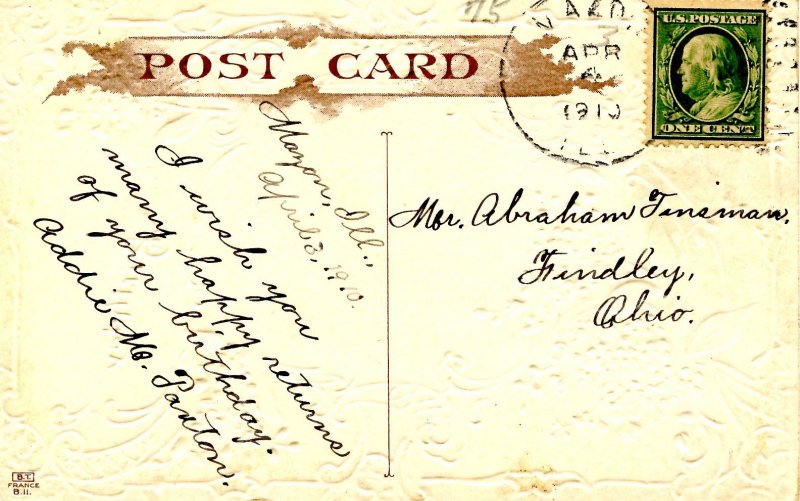 75
APR
1910
ILL
U.S. POSTAGE
ONE CENT
POST CARD
Mazon, Ill.,
April 3, 1910.
I wish you
many happy returns
of your birthday.
Addie M. Paxton.
Mr. Abraham Tinsman.
Findley,
Ohio.
B.T.
FRANCE
B.11.